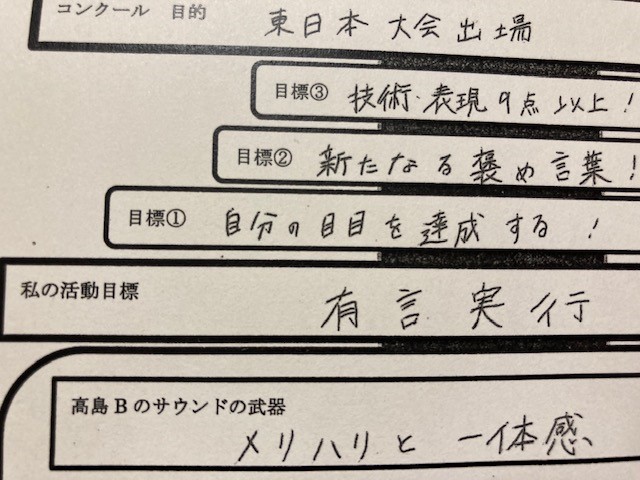 コンクール 目的 東日本大会出場
目標③ 技術・表現9点以上!
目標② 新たなる褒め言葉!
目標① 自分の目目を達成する!
私の活動目標 有言実行
高島Bのサウンドの武器
メリハリと一体感